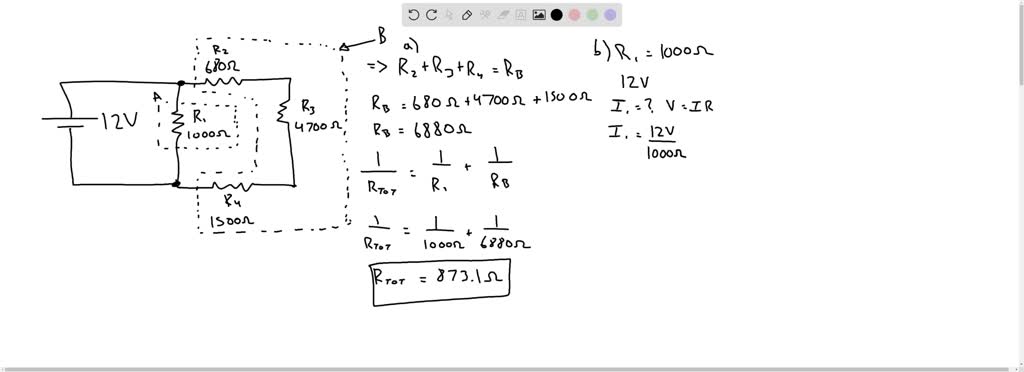 B
R2
680Ω
A
12V
R1
1000Ω
R3
4700Ω
R4
1500Ω
a)
=> R2+R3+R4 = RB
RB = 680Ω + 4700Ω + 1500Ω
RB = 6880Ω
1/RTOT = 1/R1 + 1/RB
1/RTOT = 1/1000Ω + 1/6880Ω
RTOT = 873.1Ω
b) R1 = 1000Ω
12V
I1 = ? V = IR
I1 = 12V/1000Ω